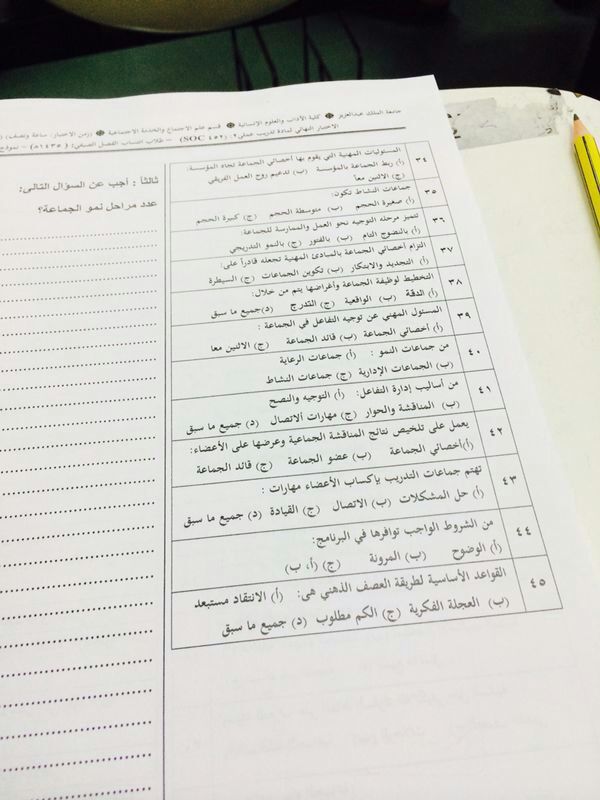 جامعة الملك عبدالعزيز ❁ كلية الآداب والعلوم الإنسانية ❁ قسم علم الاجتماع والخدمة الاجتماعية ❁ (زمن الاختبار: ساعة ونصف)
الاختبار النهائي لمادة تدريب عملي٢- (SOC ٤٥٢) – طلاب انتساب الفصل الصيفي: (١٤٣٥ هـ) – نموذج
٣٤ المسئوليات المهنية التي يقوم بها أخصائي الجماعة تجاه المؤسسة:
(أ) ربط الجماعة بالمؤسسة (ب) تدعيم روح العمل الفريقي
(ج) الاثنين معاً
٣٥ جماعات النشاط تكون:
(أ) صغيرة الحجم (ب) متوسطة الحجم (ج) كبيرة الحجم
٣٦ تتميز مرحلة التوجيه نحو العمل والممارسة للجماعة:
(أ) بالنضوج التام (ب) بالفتور (ج) بالنمو التدريجي
٣٧ التزام أخصائي الجماعة بالمبادئ المهنية تجعله قادراً على:
(أ) التجديد والابتكار (ب) تكوين الجماعات (ج) السيطرة
٣٨ التخطيط لوظيفة الجماعة وأغراضها يتم من خلال:
(أ) الدقة (ب) الواقعية (ج) التدرج (د)جميع ما سبق
٣٩ المسئول المهني عن توجيه التفاعل في الجماعة :
(أ) أخصائي الجماعة (ب) قائد الجماعة (ج) الاثنين معا
٤٠ من جماعات النمو : (أ) جماعات الرعاية
(ب) الجماعات الإدارية (ج) جماعات النشاط
٤١ من أساليب إدارة التفاعل: (أ) التوجيه والنصح
(ب) المناقشة والحوار (ج) مهارات الاتصال (د) جميع ما سبق
٤٢ يعمل على تلخيص نتائج المناقشة الجماعية وعرضها على الأعضاء:
(أ)أخصائي الجماعة (ب) عضو الجماعة (ج) قائد الجماعة
٤٣ تهتم جماعات التدريب بإكساب الأعضاء مهارات :
(أ) حل المشكلات (ب) الاتصال (ج) القيادة (د) جميع ما سبق
٤٤ من الشروط الواجب توافرها في البرنامج:
(أ) الوضوح (ب) المرونة (ج) (أ، ب)
٤٥ القواعد الأساسية لطريقة العصف الذهني هى: (أ) الانتقاد مستبعد
(ب) العجلة الفكرية (ج) الكم مطلوب (د) جميع ما سبق
ثالثاً : أجب عن السؤال التالى:
عدد مراحل نمو الجماعة؟